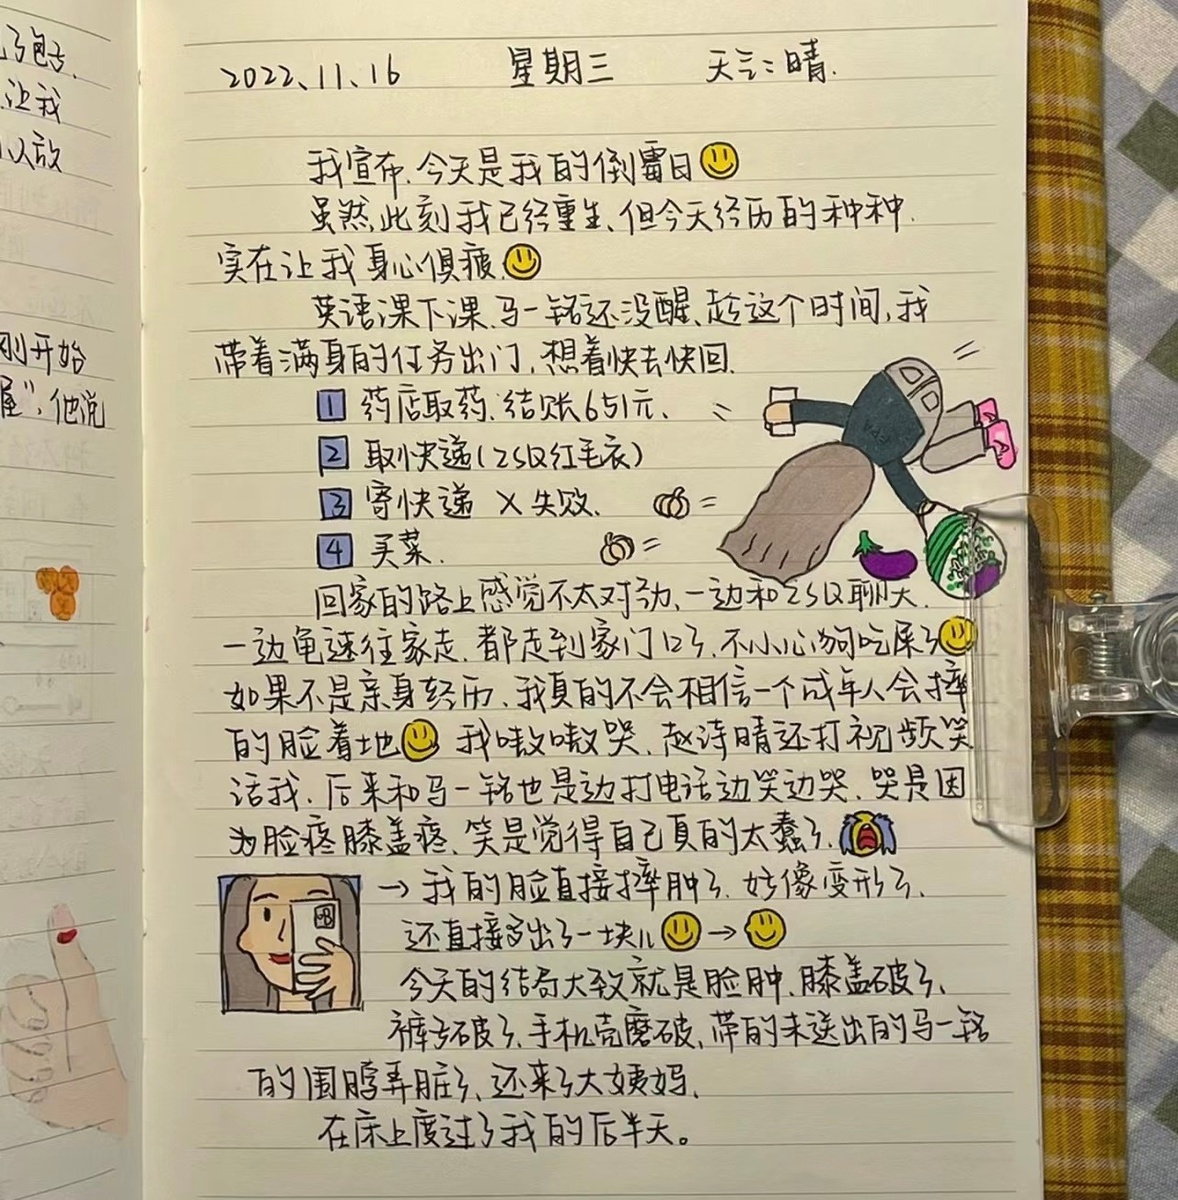 了包子.
让我
以敌
刚开始
屋”,他说
2022.11.16 星期三 天气:晴.
我宣布.今天是我的倒霉日
虽然此刻我已经重生、但今天经历的种种.
实在让我身心俱疲.
英语课下课、马一铭还没醒、趁这个时间,我
带着满身的任务出门,想着快去快回.
1 药店取药.结账651元.
2 取快递(ZSQ红毛衣)
3 寄快递 ×失败.
4 买菜.
回家的路上感觉不太对劲、一边和ZSQ聊天.
一边龟速往家走.都走到家门口了.不小心狗吃屎了
如果不是亲身经历、我真的不会相信一个成年人会摔
的脸着地 我嗷嗷哭、赵诗晴还打视频笑
话我.后来和马一铭也是边打电话边笑边哭.哭是因
为脸疼膝盖疼、笑是觉得自己真的太蠢了.
→我的脸直接摔肿了.好像变形了.
还直接多出了一块儿 →
今天的结局大致就是脸肿.膝盖破了、
裤子破了、手机壳磨破、带的未送出的马一铭
的围脖弄脏了、还来了大姨妈.
在床上度过了我的后半天。